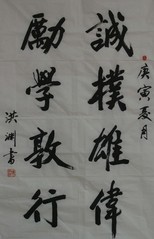 誠樸雄偉
勵學敦行
庚寅夏月
洪渊書